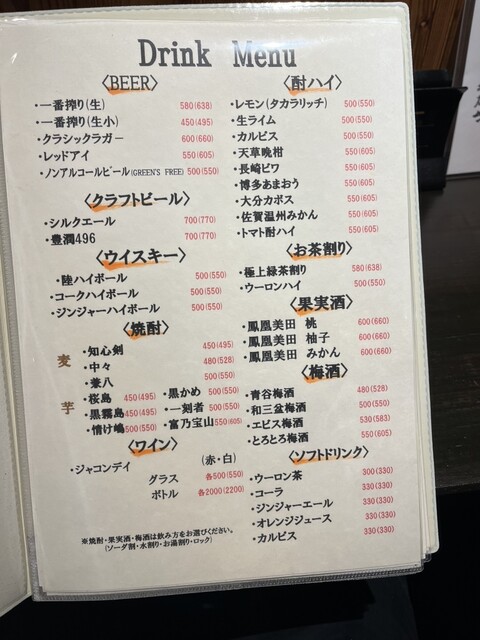 Drink Menu
〈BEER〉
・一番搾り(生) 580(638)
・一番搾り(生小) 450(495)
・クラシックラガー 600(660)
・レッドアイ 550(605)
・ノンアルコールビール(GREEN'S FREE) 500(550)
〈クラフトビール〉
・シルクエール 700(770)
・豊潤496 700(770)
〈ウイスキー〉
・陸ハイボール 500(550)
・コークハイボール 500(550)
・ジンジャーハイボール 500(550)
〈焼酎〉
麦
・知心剣 450(495)
・中々 480(528)
・兼八 500(550)
芋
・桜島 450(495) ・黒かめ 500(550)
・黒霧島 450(495) ・一刻者 500(550)
・情け嶋 500(550) ・富乃宝山 550(605)
〈ワイン〉
・ジャコンデイ (赤・白)
グラス 各500(550)
ボトル 各2000(2200)
※焼酎・果実酒・梅酒は飲み方をお選びください。
(ソーダ割・水割り・お湯割り・ロック)
〈酎ハイ〉
・レモン(タカラリッチ) 500(550)
・生ライム 500(550)
・カルピス 500(550)
・天草晩柑 550(605)
・長崎ビワ 550(605)
・博多あまおう 550(605)
・大分カボス 550(605)
・佐賀温州みかん 550(605)
・トマト酎ハイ 550(605)
〈お茶割り〉
・極上緑茶割り 580(638)
・ウーロンハイ 500(550)
〈果実酒〉
・鳳凰美田 桃 600(660)
・鳳凰美田 柚子 600(660)
・鳳凰美田 みかん 600(660)
〈梅酒〉
・青谷梅酒 480(528)
・和三盆梅酒 500(550)
・エビス梅酒 530(583)
・とろとろ梅酒 550(605)
〈ソフトドリンク〉
・ウーロン茶 300(330)
・コーラ 330(330)
・ジンジャーエール 330(330)
・オレンジジュース 330(330)
・カルピス 330(330)